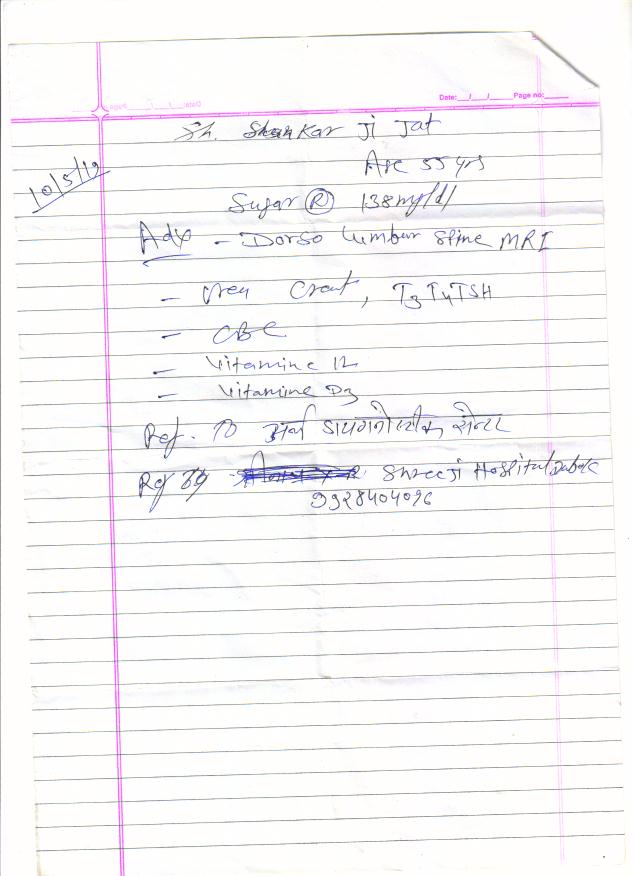 Date:__/__/____ Page no:____
Sh. Shankar Ji Jat
10/5/19
Age 55 yrs
Sugar (R) 138mg/dl
Adv - Dorso lumbar Spine MRI
- Urea Creat, T3 T4 TSH
- CBC
- Vitamine 12
- Vitamine D3
Ref. To अर्थ डायग्नोस्टीक सेन्टर
Ref By Shreeji Hospital Dabok
9928404096